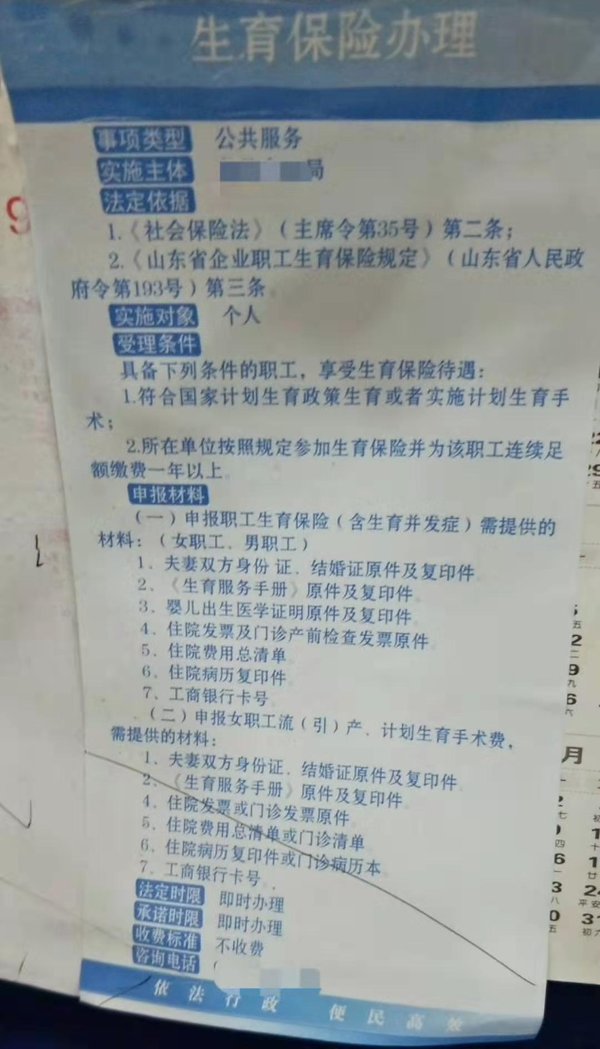 生育保险办理
事项类型 公共服务
实施主体 局
法定依据
1.《社会保险法》（主席令第35号）第二条；
2.《山东省企业职工生育保险规定》（山东省人民政
府令第193号）第三条。
实施对象 个人
受理条件
具备下列条件的职工，享受生育保险待遇：
1.符合国家计划生育政策生育或者实施计划生育手
术；
2.所在单位按照规定参加生育保险并为该职工连续足
额缴费一年以上。
申报材料
（一）申报职工生育保险（含生育并发症）需提供的
材料：（女职工、男职工）
1、夫妻双方身份证、结婚证原件及复印件。
2、《生育服务手册》原件及复印件。
3、婴儿出生医学证明原件及复印件。
4、住院发票及门诊产前检查发票原件。
5、住院费用总清单
6、住院病历复印件。
7、工商银行卡号
（二）申报女职工流（引）产、计划生育手术费，
需提供的材料：
1、夫妻双方身份证、结婚证原件及复印件。
2、《生育服务手册》原件及复印件。
4、住院发票或门诊发票原件。
5、住院费用总清单或门诊清单
6、住院病历复印件或门诊病历本。
7、工商银行卡号。
法定时限 即时办理
承诺时限 即时办理
收费标准 不收费
咨询电话 （
依法行政 便民高效
9
月